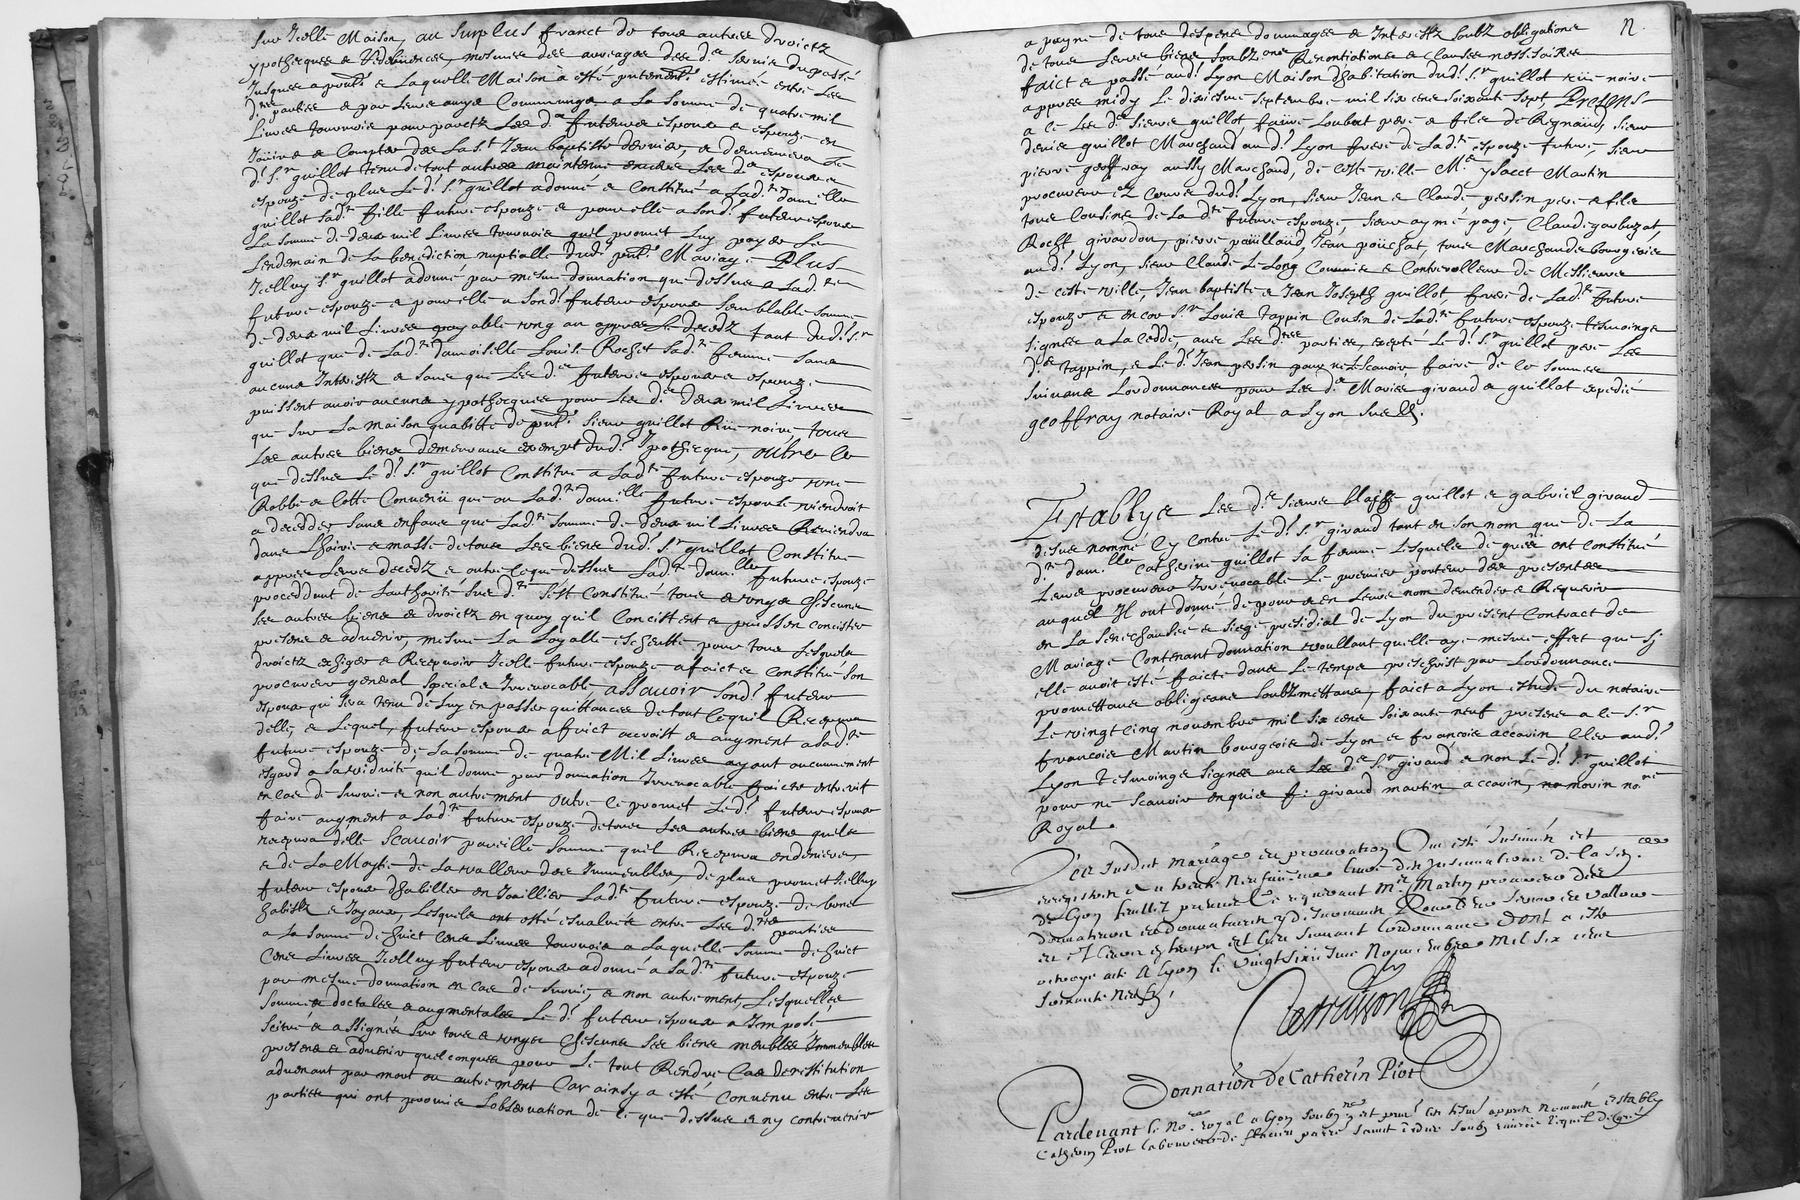 sur Icelle Maison, au surplus franct de tous autres droictz
ypothecques & Redebvences, mesmes des arreages des ds servis du passé
Jusques a pnt & Laquelle Maison a esté pntement estimée entre Les
dtes parties & par Leurs amys Communs a La somme de quatre mil
Livres tournois pour par Les ds futeurs espoux & espouze en
Jouire & Compter des La St Jean baptiste dernier, & demeurera Le
d. Sr guillot tenu de tout autres maintenir envers Les ds espoux &
espouze de plus Le d. Sr guillot a donné & Constitué a Lad. damlle
guillot sad. fille future espouze & pour elle a sond. futeur espoux
La somme de deux mil Livres tournois quil promet Luy payer Le
Lendemain de La benediction nuptialle dud. pnt Mariage Plus
Jcelluy Sr guillot a donné par mesme donnation que dessus a Lad. te
future espouze & pour elle a sond. futeur espoux semblable somme
de deux mil Livres payable ung an apprès Le decedz tant dud. Sr
guillot que de Lad. damoiselle Louise Rochet sad. femme sans
aucuns Interestz & sans que Les ds futeurs espoux & espouze
puissent avoir aucune ypothecque pour Les ds deux mil Livres
que sur La maison quabitte de pnt. sieur guillot Rue noire tous
Les autres biens demeurans exempt dud. Ipothecque, outre ce
que dessus Le d. Sr guillot Constitue a Lad. future espouze une
Robbe & Cotte Convenu que ou Lad. damlle future espouze viendroit
a decedder sans enfans que Lad. somme de deux mil Livres Reviendra
dans Lhoirie & masse de tous Les biens dud. Sr guillot Constitué
apprès Leurs decedz & outre ce que dessus Lad. damlle future espouze
proceddant de Lauthorité que d. sest Constitué tous & ungs Chescuns
ses autres biens & droictz en quoy quil Concistent & puissent concister
presens & advenir, mesme La Loyalle escheutte pour tous Lesquels
droictz exhiger & Recepvoir Icelle future espouze a faict & constitué son
procureur general special & Irrevocable assavoir sond. futeur
espoux qui sera tenu de luy en passer quittances de tout Ce quil Recepvra
delle, & Lequel futeur espoux a faict accroist & augment a Lad. te
future espouze de La somme de quatre Mil Livres ayant aucunement
esgard a La viduité quil donne par donnation Irrevocable faicte entre vif
en cas de survie & non autrement outre ce promet Led. futeur espoux
faire augment a Lad. future espouze de tous Les autres biens quil
recepvra delle scavoir pareille somme quil Recepvra en deniers,
& de La Moytie de La valleur des Immeubles, de plus promet Icelluy
futeur espoux dhabiller en Joailler Lad. future espouze de bons
habitz & Joyaux, Lesquels ont esté esvalués entre Les dtes parties
a La somme de huict Cens Livres tournois a Laquelle somme de huict
Cens Livres Icelluy futeur espoux a donné a Lad. future espouze
par mesme donnation en cas de survie, & non autrement, Lesquelles
sommes doctales & augmentales Le d. futeur espoux a Imposé
scitué & assignés sur tous & ungs Chescuns ses biens meubles Immeubles
presens & advenir quelconques pour Le tout Rendre Cas de restitution
advenant par mort ou autrement Car ainsy a esté Convenu entre Les
parties qui ont promis Lobservation de ce que dessus & ny contrevenir
12
a peyne de tous despens dommages & Interestz soubz obligations
de tous Leurs biens soubz mis Renontiations & Clauses nessessaires
faict & passé aud. Lyon Maison dhabitation dud. Sr guillot rue noire
apprès midy Le dixiesme septembre mil six cens soixante sept, Presens
a ce Les ds sieurs guillot Loubat pere & fils de Regnaud, sieur
denis guillot Marchand aud. Lyon frere de Lad. espouze future, sieur
pierre geoffray aussy Marchand, de ceste ville Me ysacct Martin
procureur ez Cours dud. Lyon, sieur Jean & Claude persin pere & fils
tous Cousins de La dte future espouze, sieur aymé page, Claude garbuzat
Rocht girardon, pierre paillaud, Jean pouchat, tous Marchands bourgeois
aud. Lyon, sieur Claude Le Long Commis & Contrerolleur de Messieurs
de ceste ville, Jean baptiste & Jean Joseph guillot, freres de Lad. future
espouze & encor Sr Louis tappin Cousin de Lad. future espouze tesmoings
signés a La Cedde, avec Les dtes parties, excepté Le d. Sr guillot pere Les
ds tappin, & Le d. Jean persin pour ne scavoir faire de ce sommés
suivans Lordonnance pour Les ds Mariés giraud & guillot expedié
geoffray notaire Royal a Lyon
Establys Les ds sieurs blaise guillot & gabriel giraud
desus nommé Cy contre Le d. Sr giraud tant en son nom que de La
dte damlle Catherine guillot sa femme Lesquels de gréé ont constitué
Leurs procureur Irrevocable Le premier porteur des presentes
auquel Ils ont donné de pour & en Leurs nom demender & Requerir
en La seneschaussée & siege presidial de Lyon du present Contract de
Mariage Contenant donnation voullant quelle aye mesme effect que sy
elle avoit esté faicte dans Le temps preschrist par Lordonnance
promettans obligeans soubzmettans, faict a Lyon estude du notaire
Le vingt cinq novembre mil six cens soixante neuf presens a ce Sr
francois Martin bourgeois de Lyon & francois accarin Clerc aud.
Lyon tesmoings signés avec Les ds Sr giraud & non Le d. Sr guillot
pour ne scavoir enquis fr giraud martin accarin, morin nore
Royal.
Les susdit mariage et procuration Ont esté Insinués et
enregistrés au livre des Insinuations de la sen.
de Lyon feuillet present Ce requerant Me Martin procureur des
donnateurs et donnataires y desnommés Pour Leur servir et valloir
en temps et lieu suivant Lordonnance dont a este
octroye acte A Lyon, le vingt sixiesme Novembre Mil six cens
soixante Neuf,
Donnation de Catherin Piot
Pardevant le nore royal a Lyon soubzné et pnt les tesm. apprès nommés estably
Catherin Piot laboureur de parre. Lequel de gré